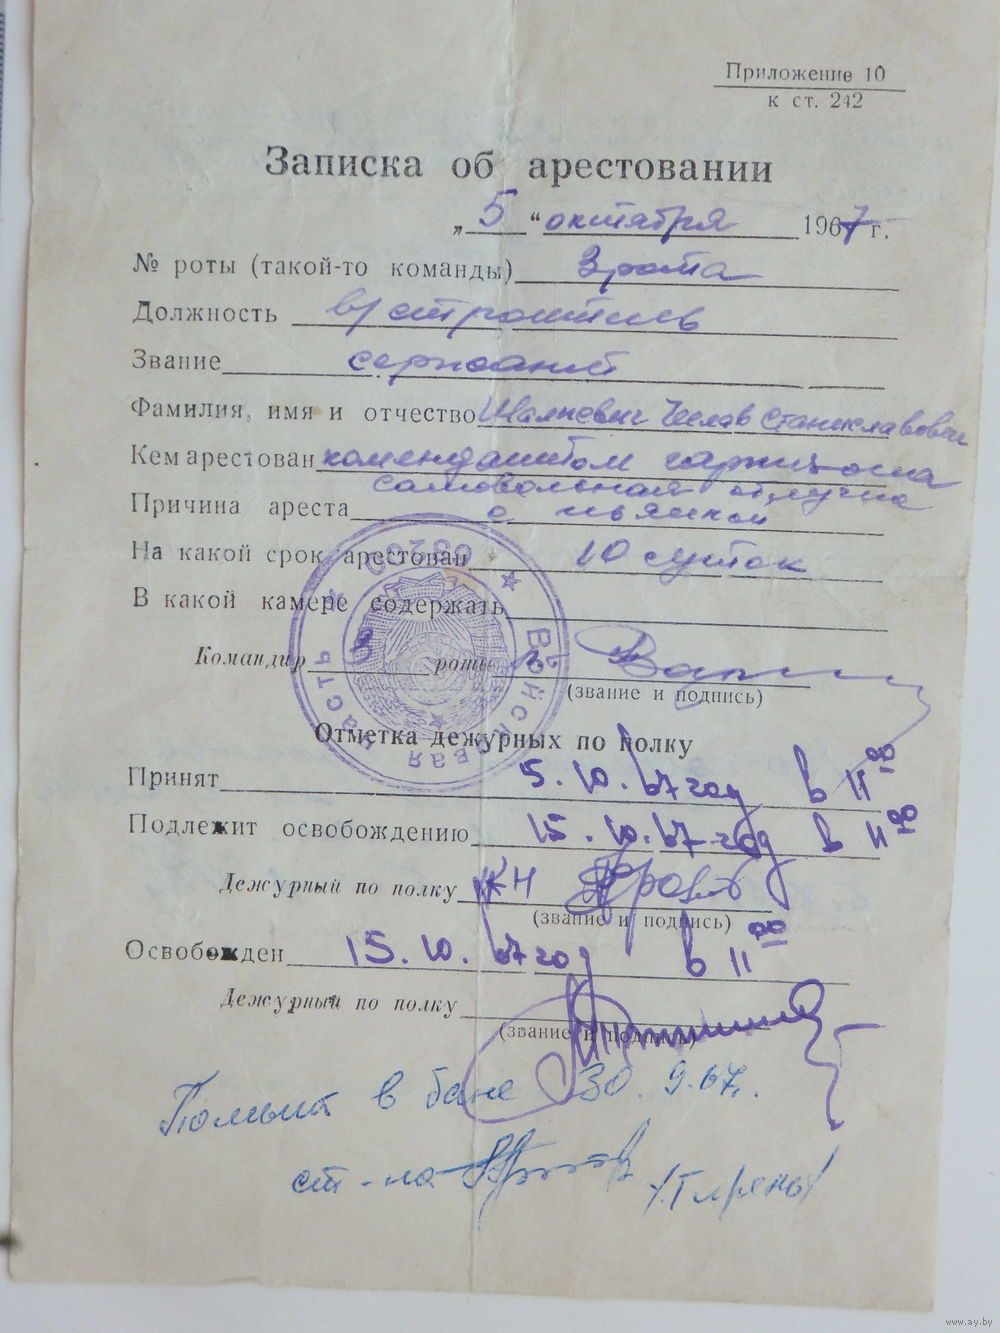 Приложение 10
к ст. 242
Записка об арестовании
„ 5 “ октября 1967 г.
№ роты (такой-то команды) 3 рота
Должность в/строитель
Звание сержант
Фамилия, имя и отчество Чеслав Станиславович
Кем арестован комендантом гарнизона
самовольная отлучка
Причина ареста с пьянкой
На какой срок арестован 10 суток
В какой камере содержать
Командир 3 роты
(звание и подпись)
Войсковая часть
Отметка дежурных по полку
Принят 5.10.67 год в 11 00
Подлежит освобождению 15.10.67 год в 11 00
Дежурный по полку
(звание и подпись)
Освобожден 15.10.67 год в 11 00
Дежурный по полку
(звание и подпись)
Помыт в бане 30.9.67г.
ст-на
www.ay.by